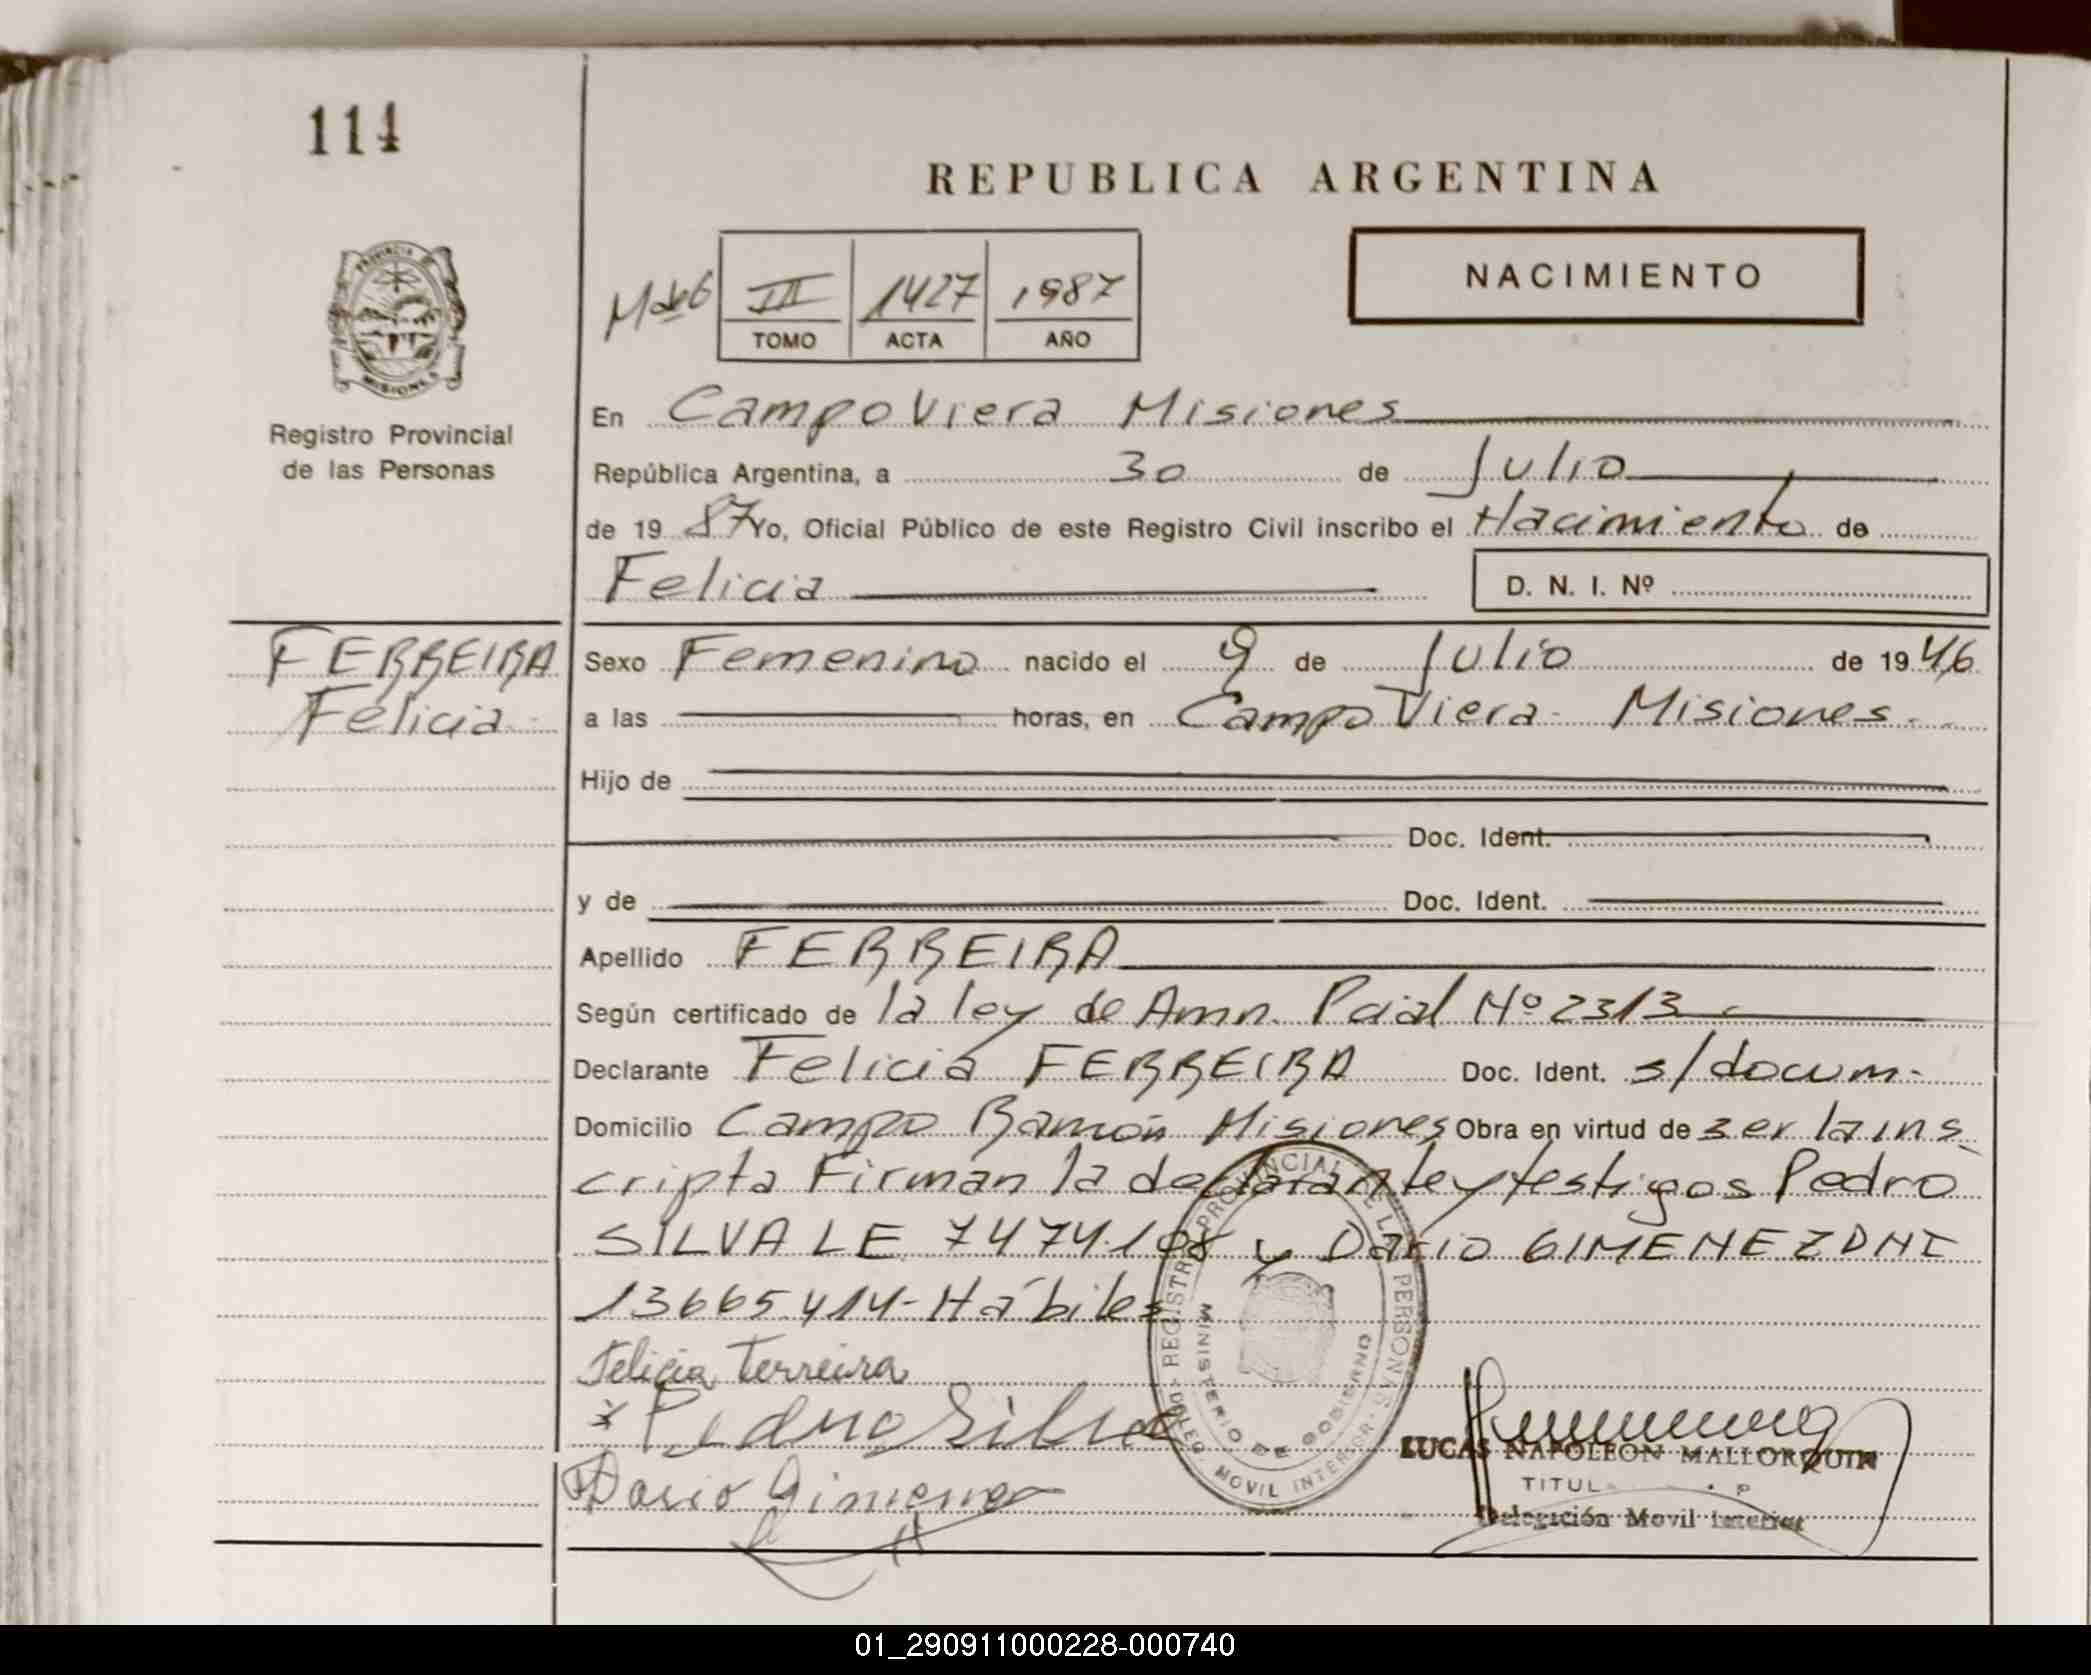 114
REPUBLICA ARGENTINA
NACIMIENTO
III 1427 1987
TOMO ACTA AÑO
PROVINCIA DE
MISIONES
Registro Provincial
de las Personas
En Campo Viera Misiones
República Argentina, a 30 de Julio
de 19 87 Yo, Oficial Público de este Registro Civil inscribo el Nacimiento de
Felicia
D. N. I. Nº
FERREIRA
Felicia
Sexo Femenino nacido el 9 de Julio de 19 46
a las horas, en Campo Viera Misiones
Hijo de
Doc. Ident.
y de Doc. Ident.
Apellido FERREIRA
Según certificado de la ley de Amn. Pcial Nº 2313
Declarante Felicia FERREIRA Doc. Ident. s/docum.
Domicilio Campo Ramón Misiones Obra en virtud de ser la ins
cripta Firman la declarante y testigos Pedro
SILVA LE 7474.108 y Dario GIMENEZ DNI
13665.414- Hábiles
Felicia Ferreira
x Pedro Silva
Dario Gimenez
REGISTRO PROVINCIAL DE LAS PERSONAS
MINISTERIO DE GOBIERNO
DELEG. MOVIL INTERIOR
LUCAS NAPOLEON MALLORQUIN
TITUL
Delegación Movil Interior
01_290911000228-000740